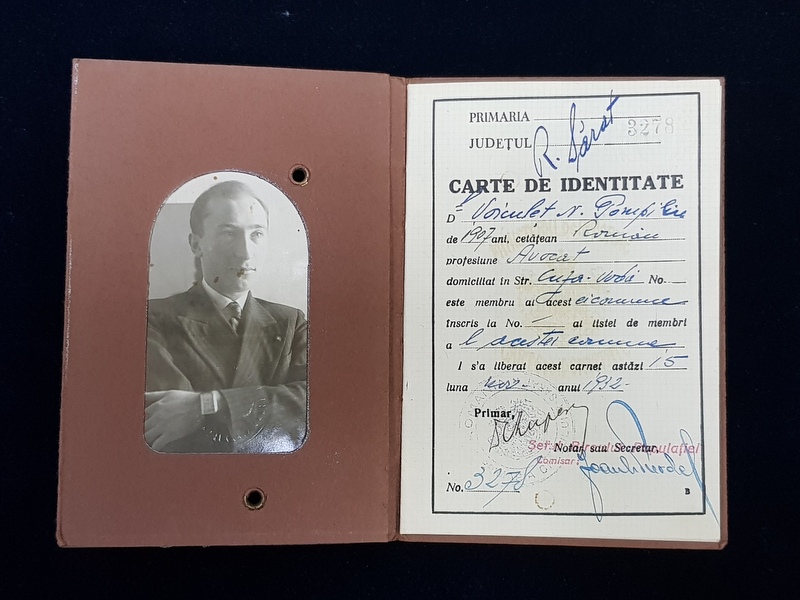 PRIMARIA
JUDEȚUL R. Sărat 3278
CARTE DE IDENTITATE
D Voiculet N. Pompiliu
de 1907 ani, cetățean Român
profesiune Avocat
domiciliat în Str. Cuza-Vodă No.
este membru al acestei comune
înscris la No. — al listei de membri
a l acestei comune
I s'a liberat acest carnet astăzi 15
luna nov. anul 1932
Primar,
Șeful Biroului Populației
Notar sau Secretar,
Comisar
No. 3278
B